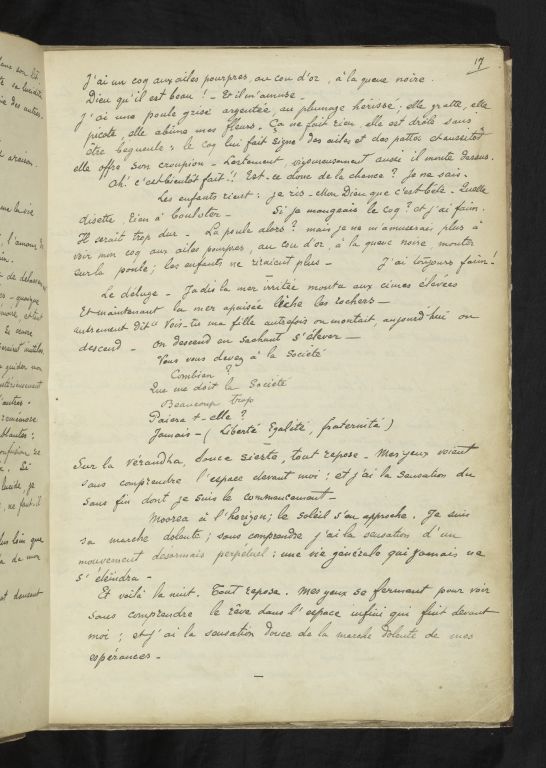 17
J'ai un coq aux ailes pourpres, au cou d'or, à la queue noire.
Dieu qu'il est beau! - Et il m'amuse -
J'ai une poule grise argentée, au plumage hérissé; elle gratte, elle
picote, elle abîme mes fleurs. Ça ne fait rien, elle est drôle sans
être bégueule: le coq lui fait signe des ailes et des pattes et aussitôt
elle offre son croupion. Lentement, vigoureusement aussi il monte dessus.
Ah! c'est bientôt fait!! Est-ce donc de la chance? Je ne sais.
Les enfants rient: je ris - Mon Dieu que c'est bête - Quelle
disette, rien à boulotter - Si je mangeais le coq? et j'ai faim.
Il serait trop dur - La poule alors? mais je ne m'amuserais plus à
voir mon coq aux ailes pourpres, au cou d'or, à la queue noire, monter
sur la poule; les enfants ne riraient plus - J'ai toujours faim!
Le déluge - Jadis la mer irritée monta aux cimes élevées
Et maintenant la mer apaisée lèche les rochers -
autrement dit Vois-tu ma fille autrefois on montait, aujourd'hui on
descend - On descend en sachant s'élever -
Vous vous devez à la Société
Combien?
Que me doit la Société
Beaucoup trop
Paiera t-elle?
Jamais - (Liberté Egalité, fraternité)
Sur la Vérandha, douce sieste, tout repose - Mes yeux voient
sans comprendre l'espace devant moi; et j'ai la sensation du
sans fin dont je suis le commencement -
Moorea à l'horizon; le Soleil s'en approche. Je suis
sa marche dolente; sans comprendre j'ai la sensation d'un
mouvement désormais perpétuel: une vie générale qui jamais ne
s'éteindra -
Et voilà la nuit. Tout repose. Mes yeux se ferment pour voir
sans comprendre le rêve dans l'espace infini qui fuit devant
moi; et j'ai la sensation douce de la marche dolente de mes
espérances -